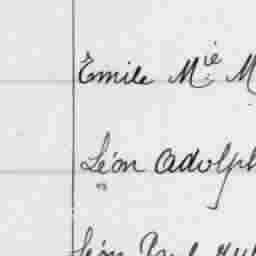 Emile Mie M
Léon Adolph
Léon